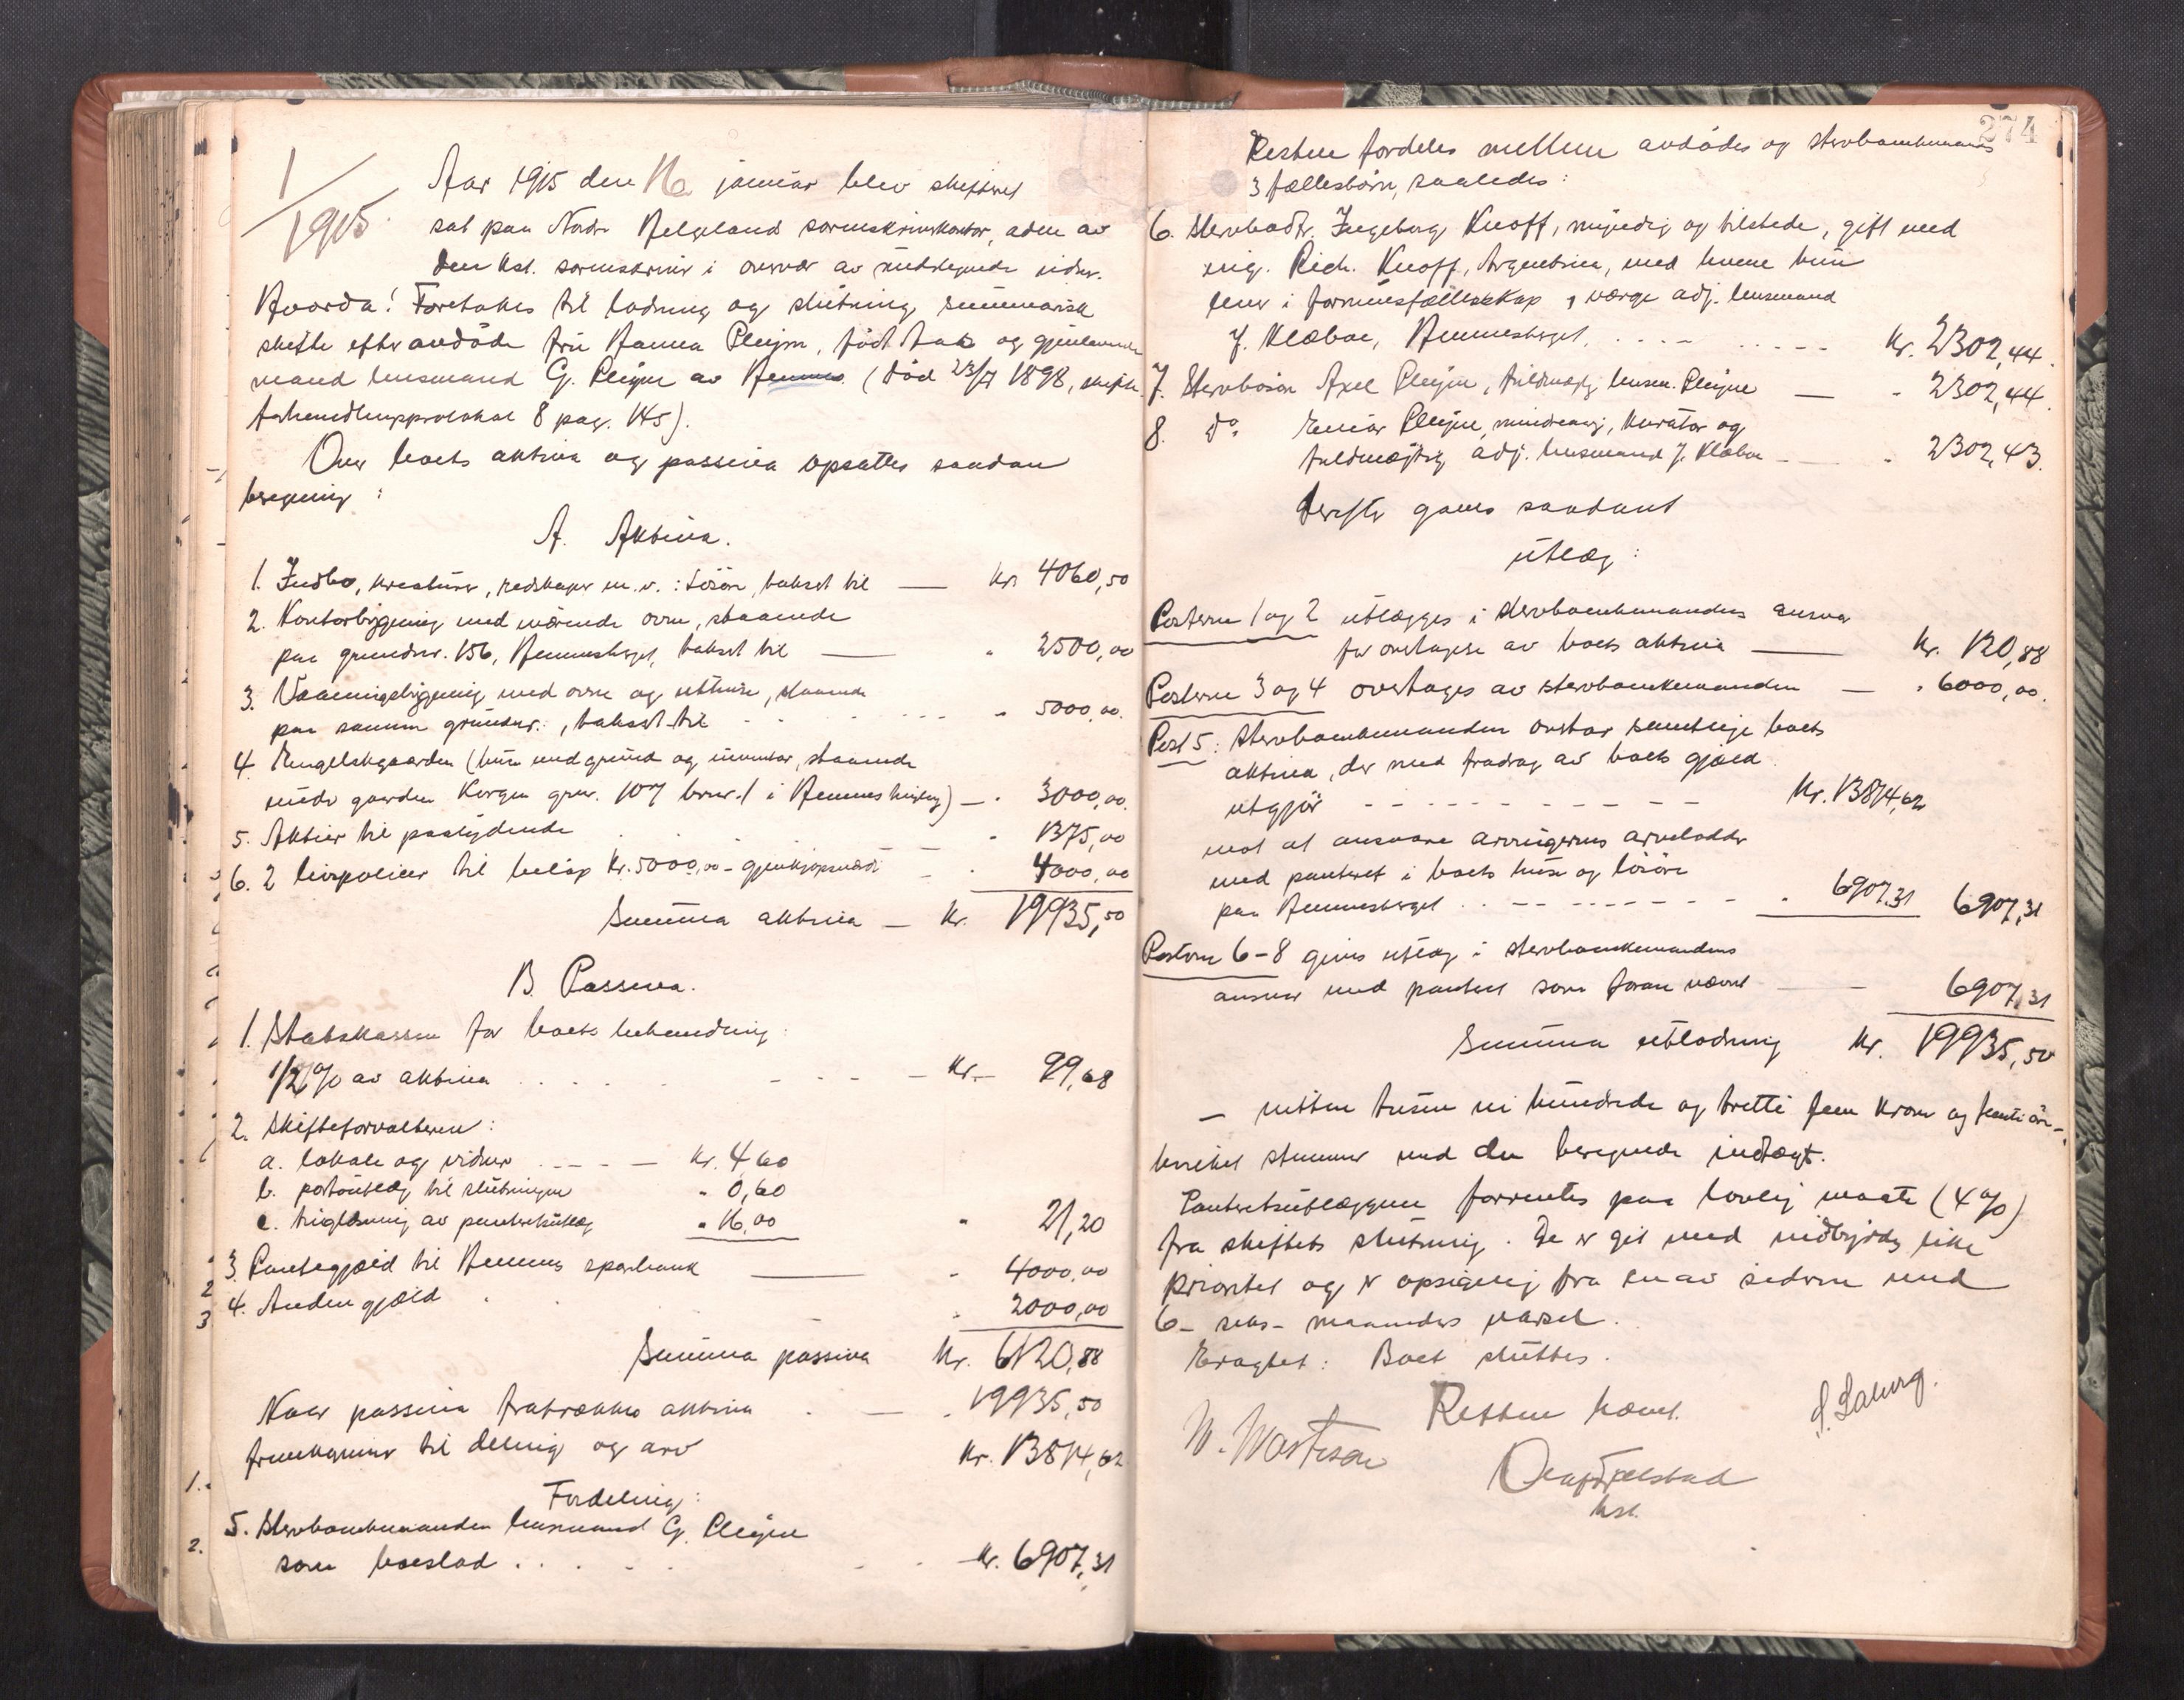 1/1915
Aar 1915 den 16 januar blev skifteret
sat paa Nordre Helgeland sorenskriverkontor, adm av
den kst. sorenskriver i overvær av undertegnede vidner.
Hvorda! Foretokes til lodning og slutning summarisk
skifte efter avdöde fru Hanna Pleijm, född og gjenlevende
mand lensmand G. Pleijm av Hemnes (död 23/7 1898, skifte
forhandlingsprotokol 8 pag. 145).
Over boets aktiva og passiva opsattes saadan
beregning:
A. Aktiva.
1. Indbo, kreaturer, redskaper m.v. : lösöre, takset til — kr. 4060,50
2. Kontorbygning med værende ovne, staaende
paa grundnr. 156, Hemnesberget, takset til — " 2500,00
3. Vaaningsbygning med ovne og uthuse, staaende
paa samme grundnr., takset til - - - " 5000,00.
4. Engelskgaarden (hus med grund og inventar, staaende
under gaarden Korgen gnr. 107 brnr. 1 i Hemnes tinglag) — " 3000,00.
5. Aktier til paalydende . . " 1375,00
6. 2 livspolicer til beløp kr. 5000,00 - gjenkjøpsværdi - " 4000,00
Summa aktiva — kr. 19935,50
B. Passiva.
1. Statskassen for boets behandling:
1/2 % av aktiva . . . - - - kr. 99,68
2. Skifteforvalteren:
a. lokale og vidner - - - - kr. 4,60
b. portoutlæg til slutningen " 0,60
c. tinglæsning av panteretsutlæg " 16,00 " 21,20
3. Pantegjæld til Hemnes sparebank — " 4000,00
4. Anden gjæld . . " 2000,00
Summa passiva kr. 6120,88
Naar passiva fratrækkes aktiva . — " 19935,50
fremkommer til deling og arv kr. 13814,62
Fordeling:
5. Stervboenkemanden lensmand G. Pleijm
som boeslod . . . - - kr. 6907,31
274
Resten fordeles mellem avdödes og stervboenkemandens
3 fællesbörn, saaledes:
6. Stervbodtr. Ingeborg Knoff, myndig og tilstede, gift med
ing. Rich. Knoff, Argentina, med hvem hun
lever i formuesfællesskap, værge adj. lensmand
J. Klæboe, Hemnesberget. . . . - - - - - kr. 2302,44.
7. Stervbosön Axel Pleijm, fuldmægtig lensm. Pleijm — " 2302,44.
8. do. Einar Pleijm, mindreaarig, kurator og
fuldmægtig adj. lensmand J. Klæboe - — " 2302,43.
Derefter gaves saadant
utlæg:
Posterne 1 og 2 utlægges i stervboenkemandens ansvar
for overtagelse av boets aktiva — kr. 120,88
Posterne 3 og 4 overtages av stervboenkemanden — " 6000,00.
Post 5: Stervboenkemanden overtar samtlige boets
aktiva, der med fradrag av boets gjæld
utgjør - - - - - - - - - kr. 13814,62
mot at ansvare arvingernes arvelodder
med panteret i boets huse og lösöre
paa Hemnesberget . . - - - - - - - " 6907,31 6907,31
Posterne 6-8 gives utlæg i stervboenkemandens
ansvar med panteret som foran nævnt — 6907,31
Summa utlodning kr. 19935,50
— nitten tusen ni hundrede og tretti fem kroner og femti öre —,
hvilket stemmer med den beregnede indtægt.
Panteretsutlæggene forrentes paa lovlig maate (4 %)
fra skiftets slutning. De er git med indbyrdes like
prioritet og er opsigelig fra en av siderne med
6 - seks - maaneders varsel.
Eragtet: Boet sluttes.
Retten hævet.
kst.